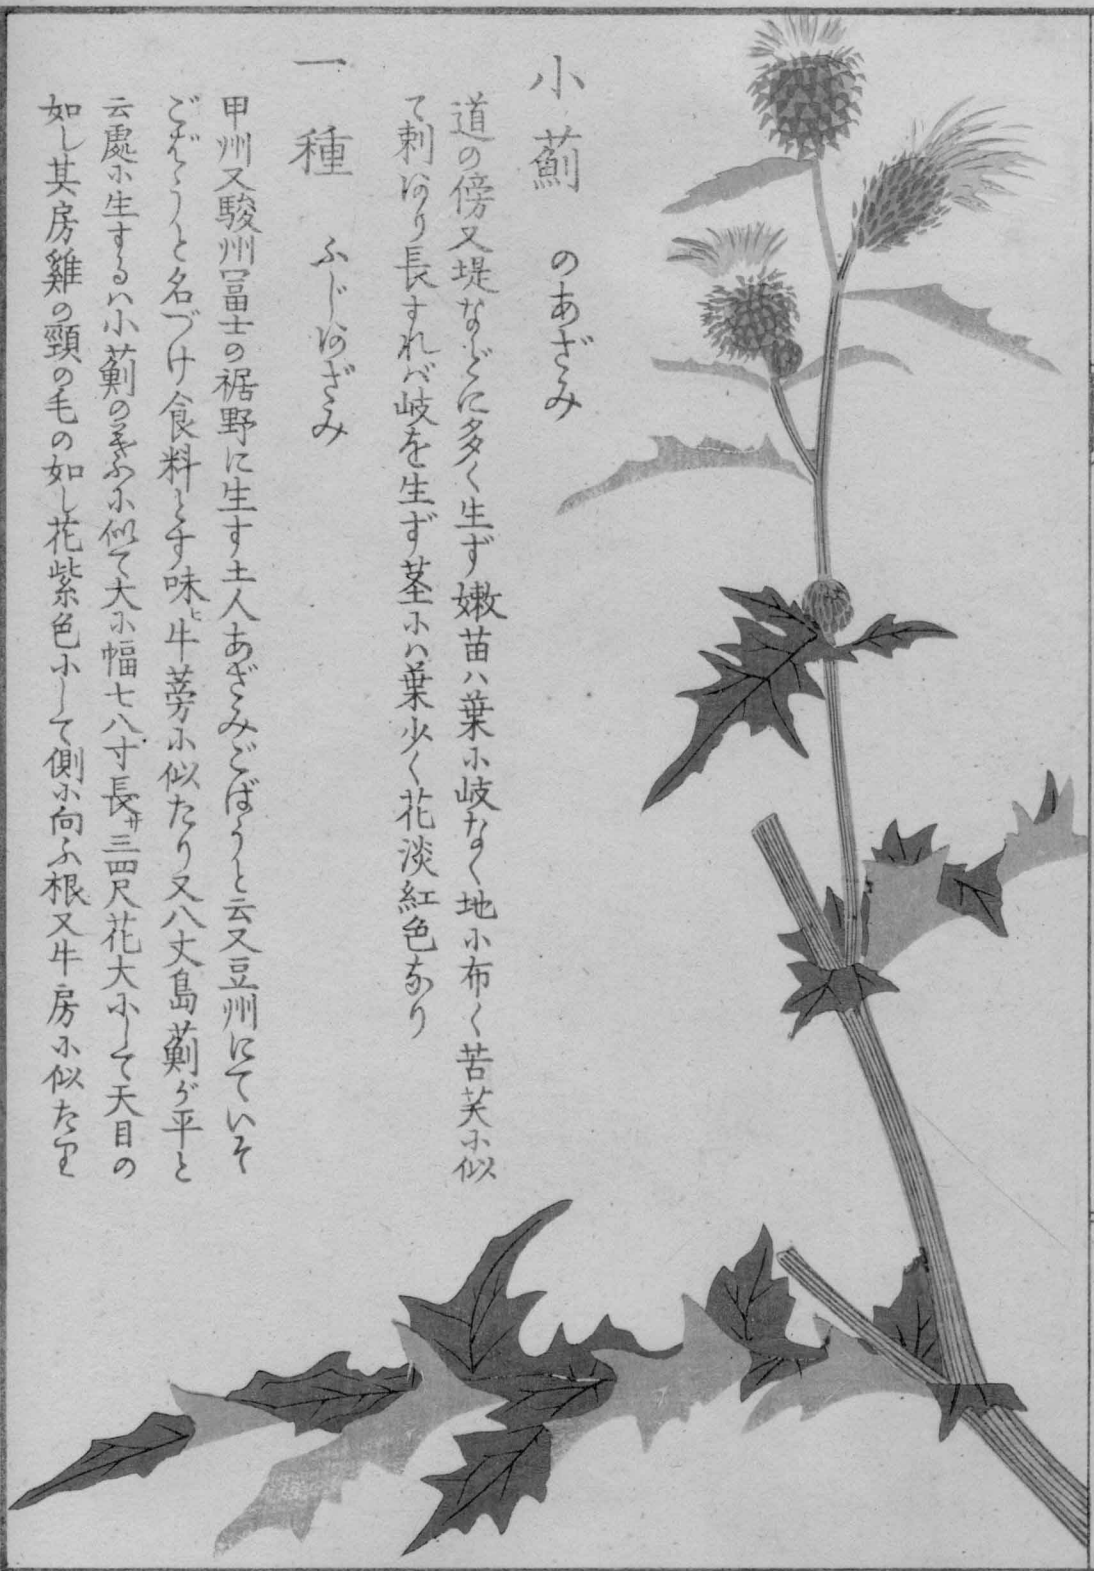 小薊 のあざみ
道の傍又堤などに多く生ず嫩苗ハ葉に岐なく地に布く苦芙に似
て刺あり長ずれバ岐を生ず茎にハ葉少く花淡紅色なり
一種 ふじあざみ
甲州又駿州冨士の裾野に生す土人あざみごばうと云又豆州にていそ
ごばうと名づけ食料とす味ヒ牛蒡に似たり又八丈島薊が平と
云處に生するハ小薊の葉に似て大に幅七八寸長サ三四尺花大にして天目の
如し其房雞の頸の毛の如し花紫色にして側に向ふ根又牛房に似たり